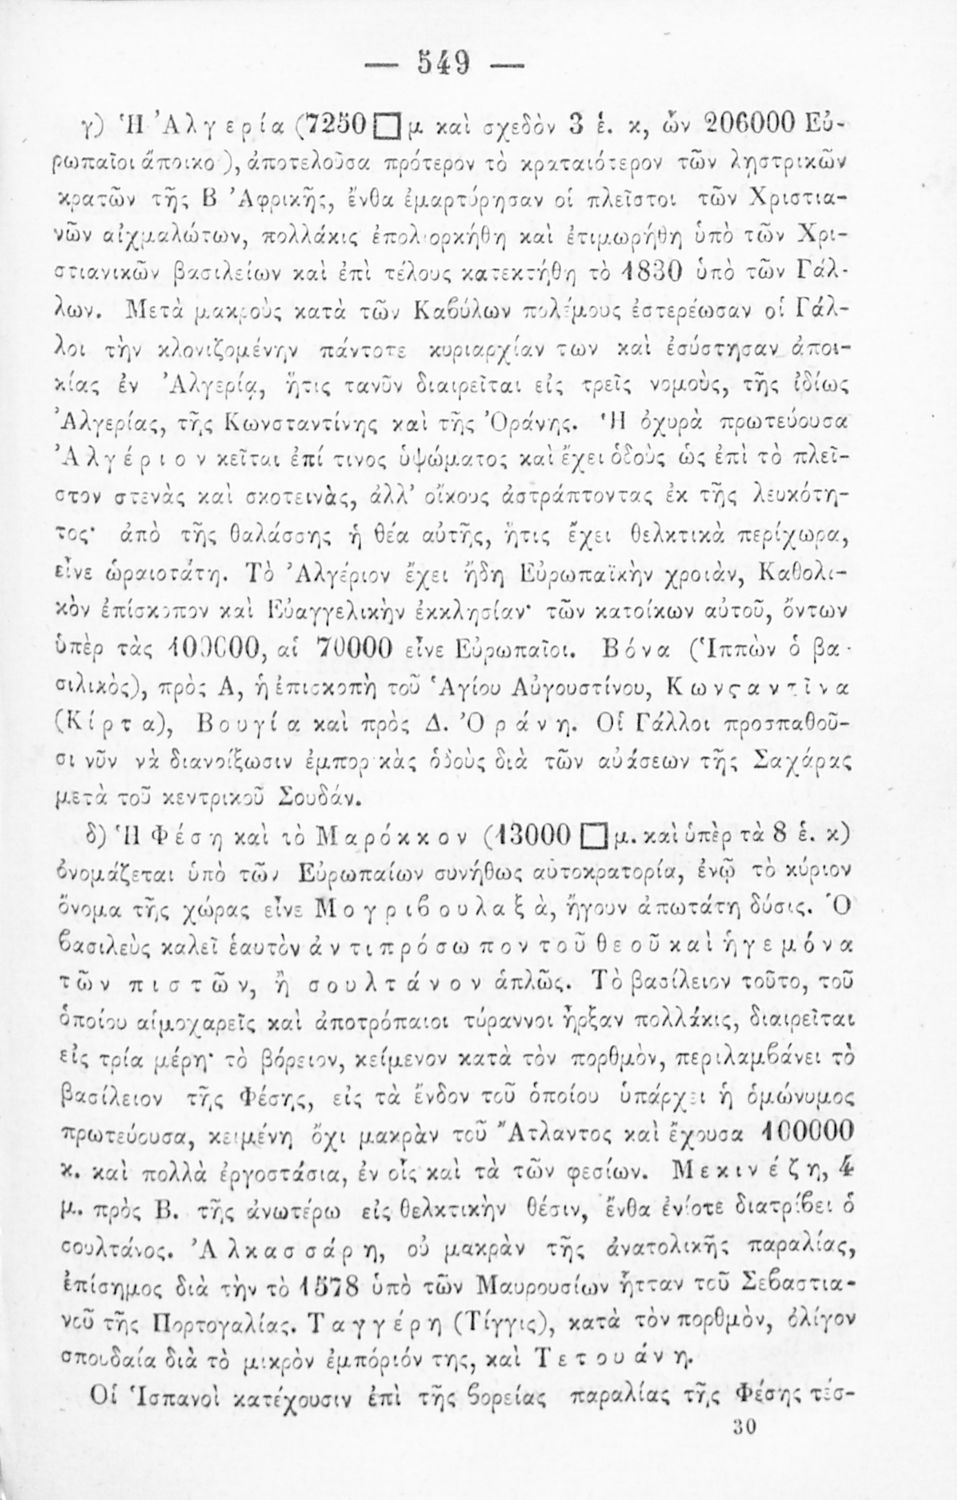 — 549 —
γ) Ἡ Ἀλγερία (7250 □ μ καὶ σχεδὸν 3 ἑ. κ, ὧν 206000 Εὐ-
ρωπαῖοι ἄποικο ), ἀποτελοῦσα πρότερον τὸ κραταιότερον τῶν λῃστρικῶν
κρατῶν τῆς Β Ἀφρικῆς, ἔνθα ἐμαρτύρησαν οἱ πλεῖστοι τῶν Χριστια-
νῶν αἰχμαλώτων, πολλάκις ἐπολιορκήθη καὶ ἐτιμωρήθη ὑπὸ τῶν Χρι-
στιανικῶν βασιλείων καὶ ἐπὶ τέλους κατεκτήθη τὸ 1830 ὑπὸ τῶν Γάλ-
λων. Μετὰ μακροὺς κατὰ τῶν Καβύλων πολέμους ἐστερέωσαν οἱ Γάλ-
λοι τὴν κλονιζομένην πάντοτε κυριαρχίαν των καὶ ἐσύστησαν ἀποι-
κίας ἐν Ἀλγερίᾳ, ἥτις τανῦν διαιρεῖται εἰς τρεῖς νομοὺς, τῆς ἰδίως
Ἀλγερίας, τῆς Κωνσταντίνης καὶ τῆς Ὀράνης. Ἡ ὀχυρὰ πρωτεύουσα
Ἀλγέριον κεῖται ἐπί τινος ὑψώματος καὶ ἔχει ὁδοὺς ὡς ἐπὶ τὸ πλεῖ-
στον στενὰς καὶ σκοτεινὰς, ἀλλ' οἴκους ἀστράπτοντας ἐκ τῆς λευκότη-
τος· ἀπὸ τῆς θαλάσσης ἡ θέα αὐτῆς, ἥτις ἔχει θελκτικὰ περίχωρα,
εἶνε ὡραιοτάτη. Τὸ Ἀλγέριον ἔχει ἤδη Εὐρωπαϊκὴν χροιὰν, Καθολι-
κὸν ἐπίσκοπον καὶ Εὐαγγελικὴν ἐκκλησίαν· τῶν κατοίκων αὐτοῦ, ὄντων
ὑπὲρ τὰς 100000, αἱ 70000 εἶνε Εὐρωπαῖοι. Βόνα (Ἱππὼν ὁ βα-
σιλικὸς), πρὸς Α, ἡ ἐπισκοπὴ τοῦ Ἁγίου Αὐγουστίνου, Κωνϛαντῖνα
(Κίρτα), Βουγία καὶ πρὸς Δ. Ὀράνη. Οἱ Γάλλοι προσπαθοῦ-
σι νῦν νὰ διανοίξωσιν ἐμπορικὰς ὁδοὺς διὰ τῶν αὐάσεων τῆς Σαχάρας
μετὰ τοῦ κεντρικοῦ Σουδάν.
δ) Ἡ Φέση καὶ τὸ Μαρόκκον (13000 □ μ. καὶ ὑπὲρ τὰ 8 ἑ. κ)
ὀνομάζεται ὑπὸ τῶν Εὐρωπαίων συνήθως αὐτοκρατορία, ἐνῷ τὸ κύριον
ὄνομα τῆς χώρας εἶνε Μογριβουλαξὰ, ἤγουν ἀπωτάτη δύσις. Ὁ
βασιλεὺς καλεῖ ἑαυτὸν ἀντιπρόσωπον τοῦ θεοῦ καὶ ἡγεμόνα
τῶν πιστῶν, ἢ σουλτάνον ἁπλῶς. Τὸ βασίλειον τοῦτο, τοῦ
ὁποίου αἱμοχαρεῖς καὶ ἀποτρόπαιοι τύραννοι ἦρξαν πολλάκις, διαιρεῖται
εἰς τρία μέρη· τὸ βόρειον, κείμενον κατὰ τὸν πορθμὸν, περιλαμβάνει τὸ
βασίλειον τῆς Φέσης, εἰς τὰ ἔνδον τοῦ ὁποίου ὑπάρχει ἡ ὁμώνυμος
πρωτεύουσα, κειμένη ὄχι μακρὰν τοῦ Ἄτλαντος καὶ ἔχουσα 100000
κ. καὶ πολλὰ ἐργοστάσια, ἐν οἷς καὶ τὰ τῶν φεσίων. Μεκινέζη, 4
μ. πρὸς Β. τῆς ἀνωτέρω εἰς θελκτικὴν θέσιν, ἔνθα ἐνίοτε διατρίβει ὁ
σουλτάνος. Ἀλκασσάρη, οὐ μακρὰν τῆς ἀνατολικῆς παραλίας,
ἐπίσημος διὰ τὴν τὸ 1578 ὑπὸ τῶν Μαυρουσίων ἧτταν τοῦ Σεβαστια-
νοῦ τῆς Πορτογαλίας. Ταγγέρη (Τίγγις), κατὰ τὸν πορθμὸν, ὀλίγον
σπουδαία διὰ τὸ μικρὸν ἐμπόριόν της, καὶ Τετουάνη.
Οἱ Ἱσπανοὶ κατέχουσιν ἐπὶ τῆς βορείας παραλίας τῆς Φέσης τέσ-
30